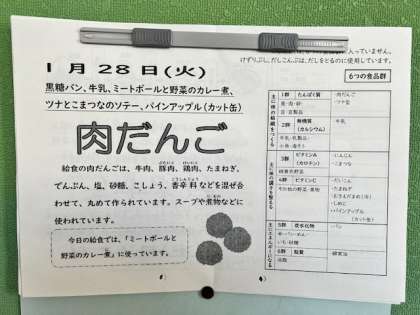 入っていません。
けずりぶし、だしこんぶは、だしをとるのに使用しています。
1月28日(火)
黒糖パン、牛乳、ミートボールと野菜のカレー煮、
ツナとこまつなのソテー、パインアップル(カット缶)
肉だんご
給食の肉だんごは、牛肉、豚肉、鶏肉、たまねぎ、
でんぷん、塩、砂糖、こしょう、香辛料などを混ぜ合
わせて、丸めて作られています。スープや煮物などに
使われています。
今日の給食では、「ミートボールと
野菜のカレー煮」に使っています。
6つの食品群
主に体の組織をつくる
1群 たんぱく質
・肉だんご
・ツナ缶
2群 無機質
(カルシウム)
・牛乳
牛乳・乳製品
主に体の調子を整える
3群 ビタミンA
(カロテン)
・にんじん
・こまつな
緑黄色野菜
4群 ビタミンC
その他の野菜・果物
・だいこん
・たまねぎ
・しめじ
・パインアップル
(カット缶)
主にエネルギーになる
5群 炭水化物
・パン
いも・砂糖
6群 脂質
油脂